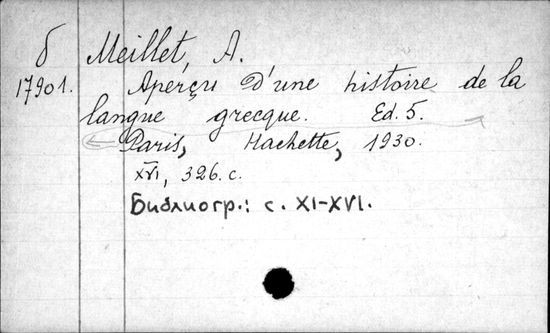 б Meillet, A.
17901. Aperçu d'une histoire de la
langue grecque. Ed. 5.
Paris, Hachette, 1930.
XVI, 326. с.
Библиогр.: с. XI-XVI.